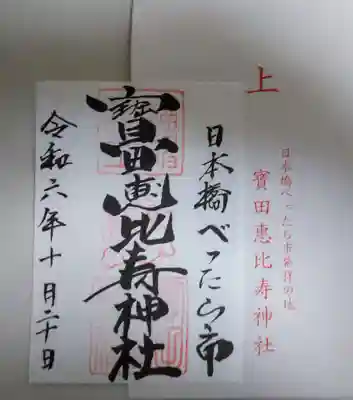 上
日本橋べったら市発祥の地
寶田恵比寿神社
日本橋べったら市
寶田恵比寿神社
令和六年十月二十日